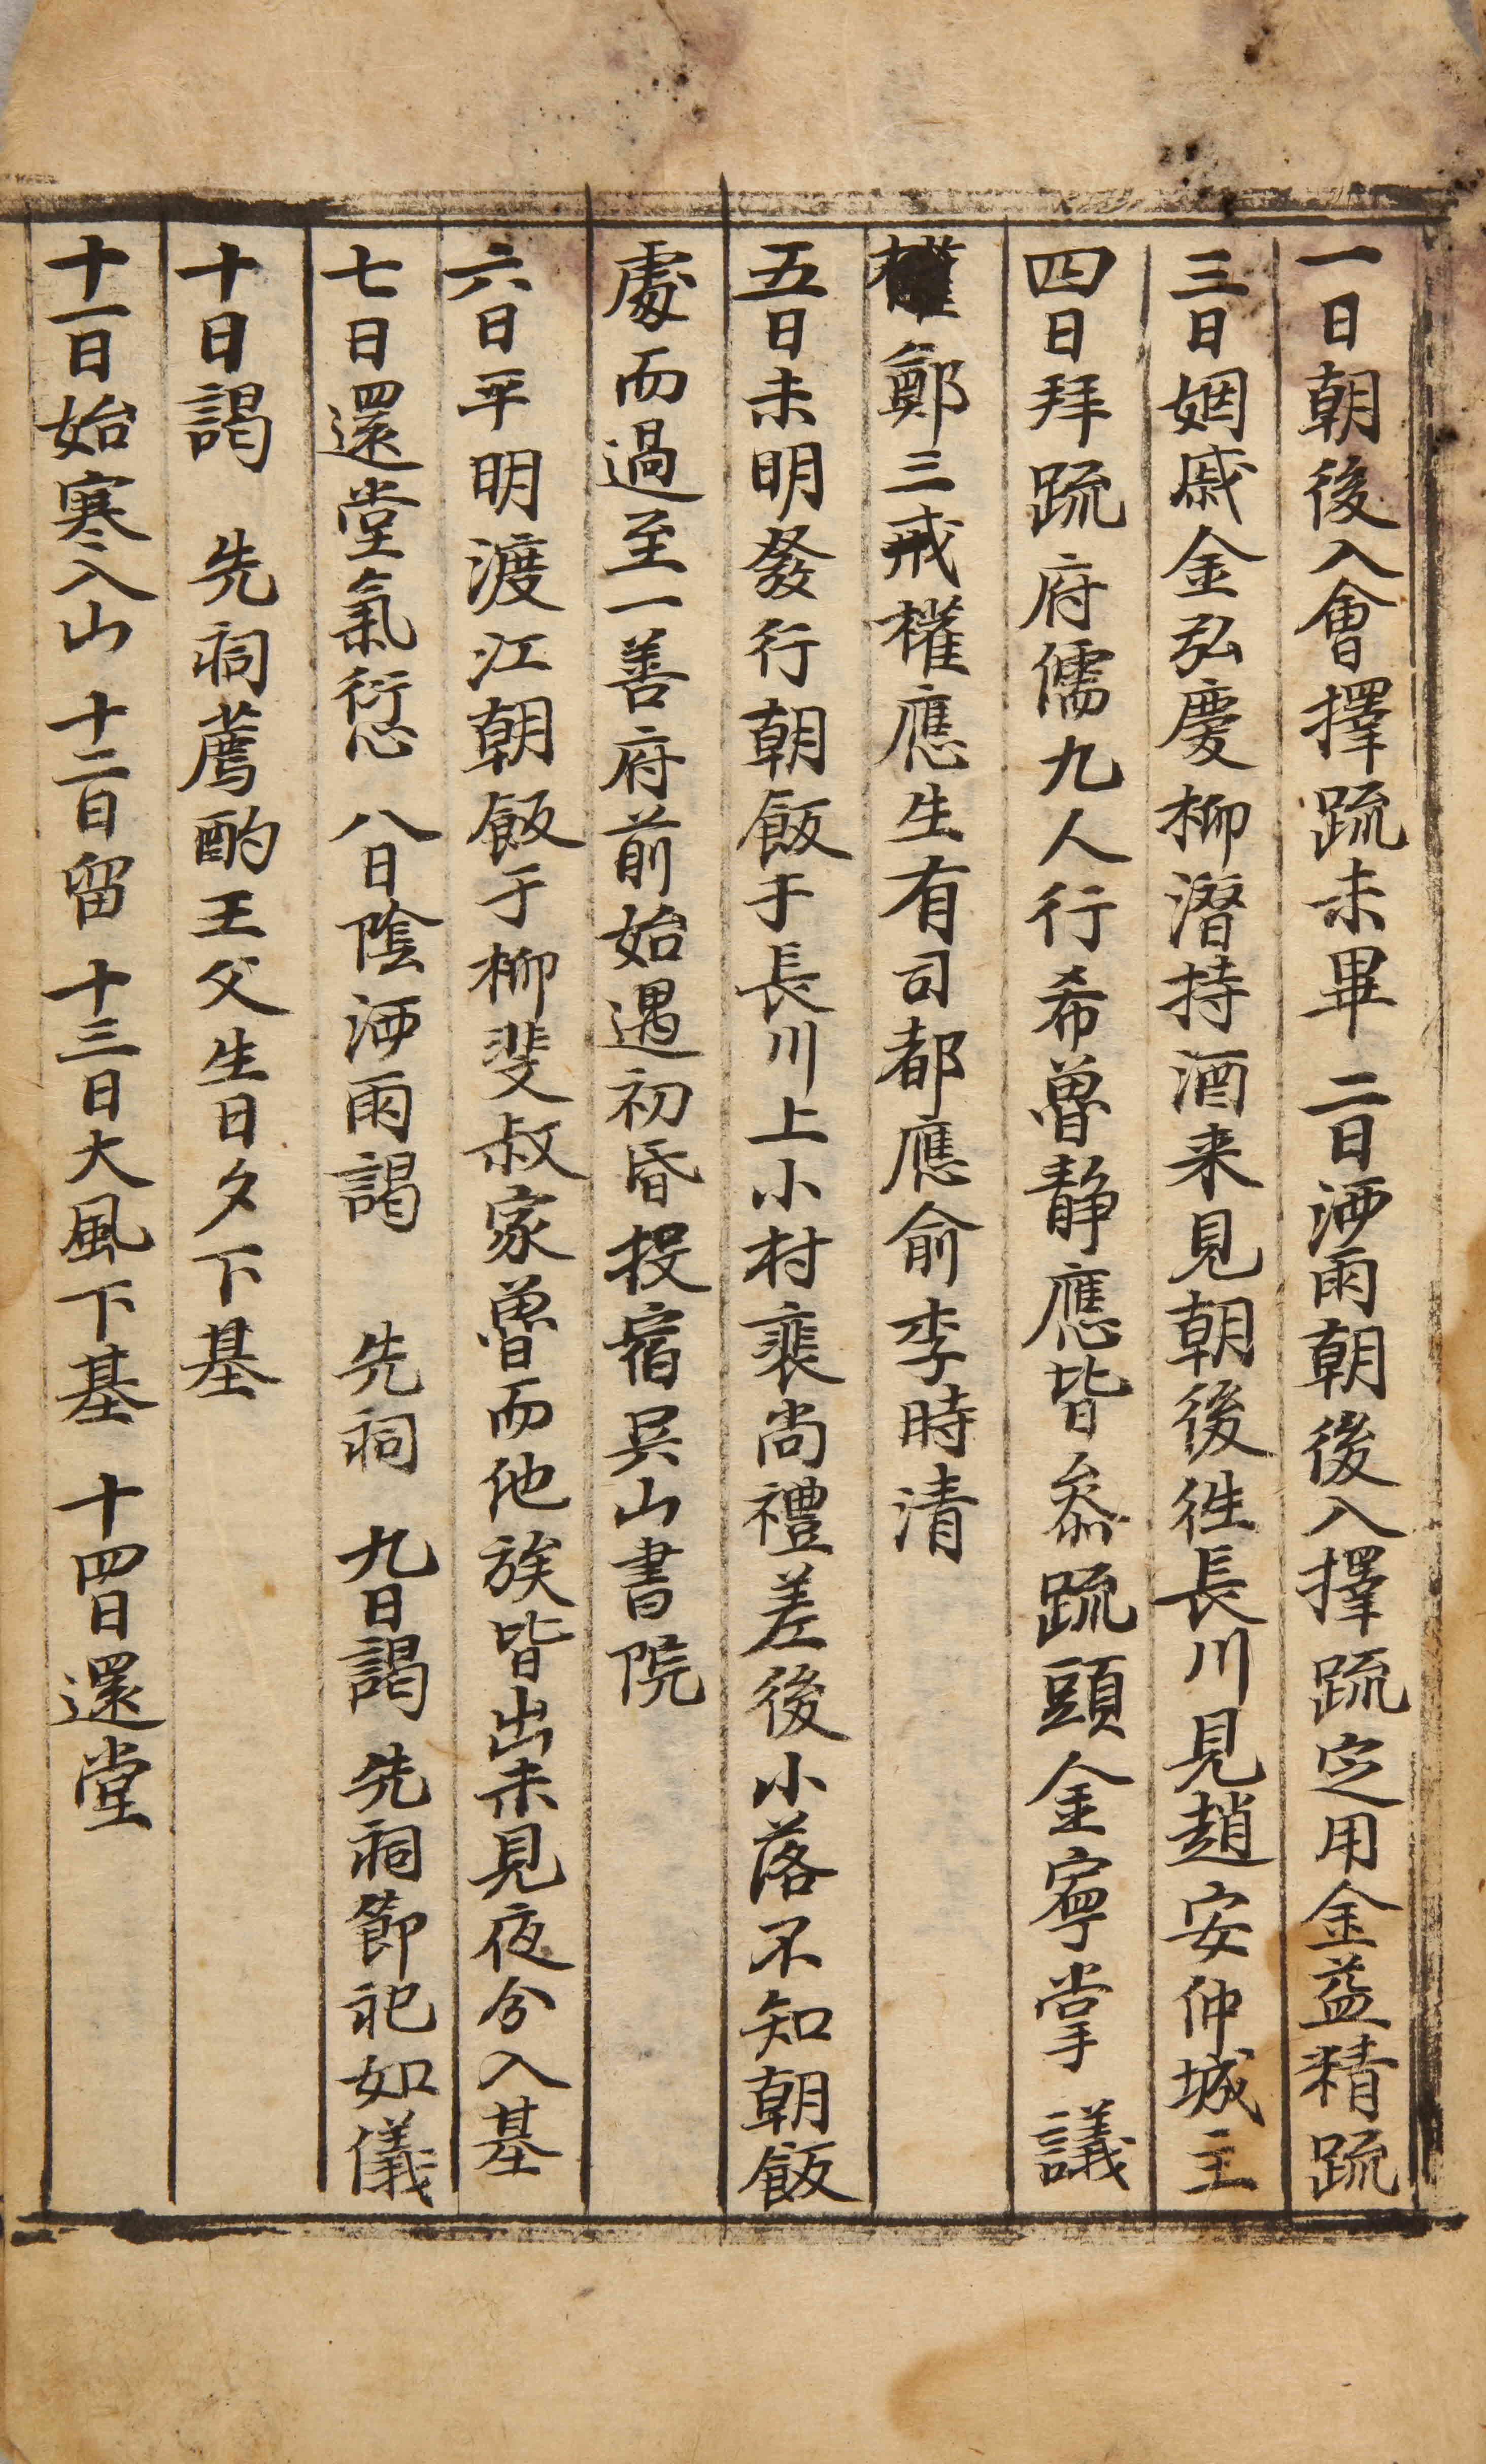 一日朝後入會擇疏未畢 二日洒雨朝後入擇疏定用金益精疏
三日姻戚金弘慶柳潛持酒来見朝後徃長川見趙安仲城主
四日拜疏府儒九人行希魯靜應皆叅疏頭金寧掌議
鄭三戒權應生有司都應俞李時清
五日未明發行朝飯于長川上小村裴尚禮差後小落不知朝飯
處而過至一善府前始遇初昏投宿吳山書院
六日平明渡江朝飯于柳斐叔家魯而他族皆出未見夜分入基
七日還堂氣愆 八日陰洒雨謁 先祠 九日謁 先祠節祀如儀
十日謁 先祠薦酌王父生日夕下基
十一日始寒入山 十二日留 十三日大風下基 十四日還堂